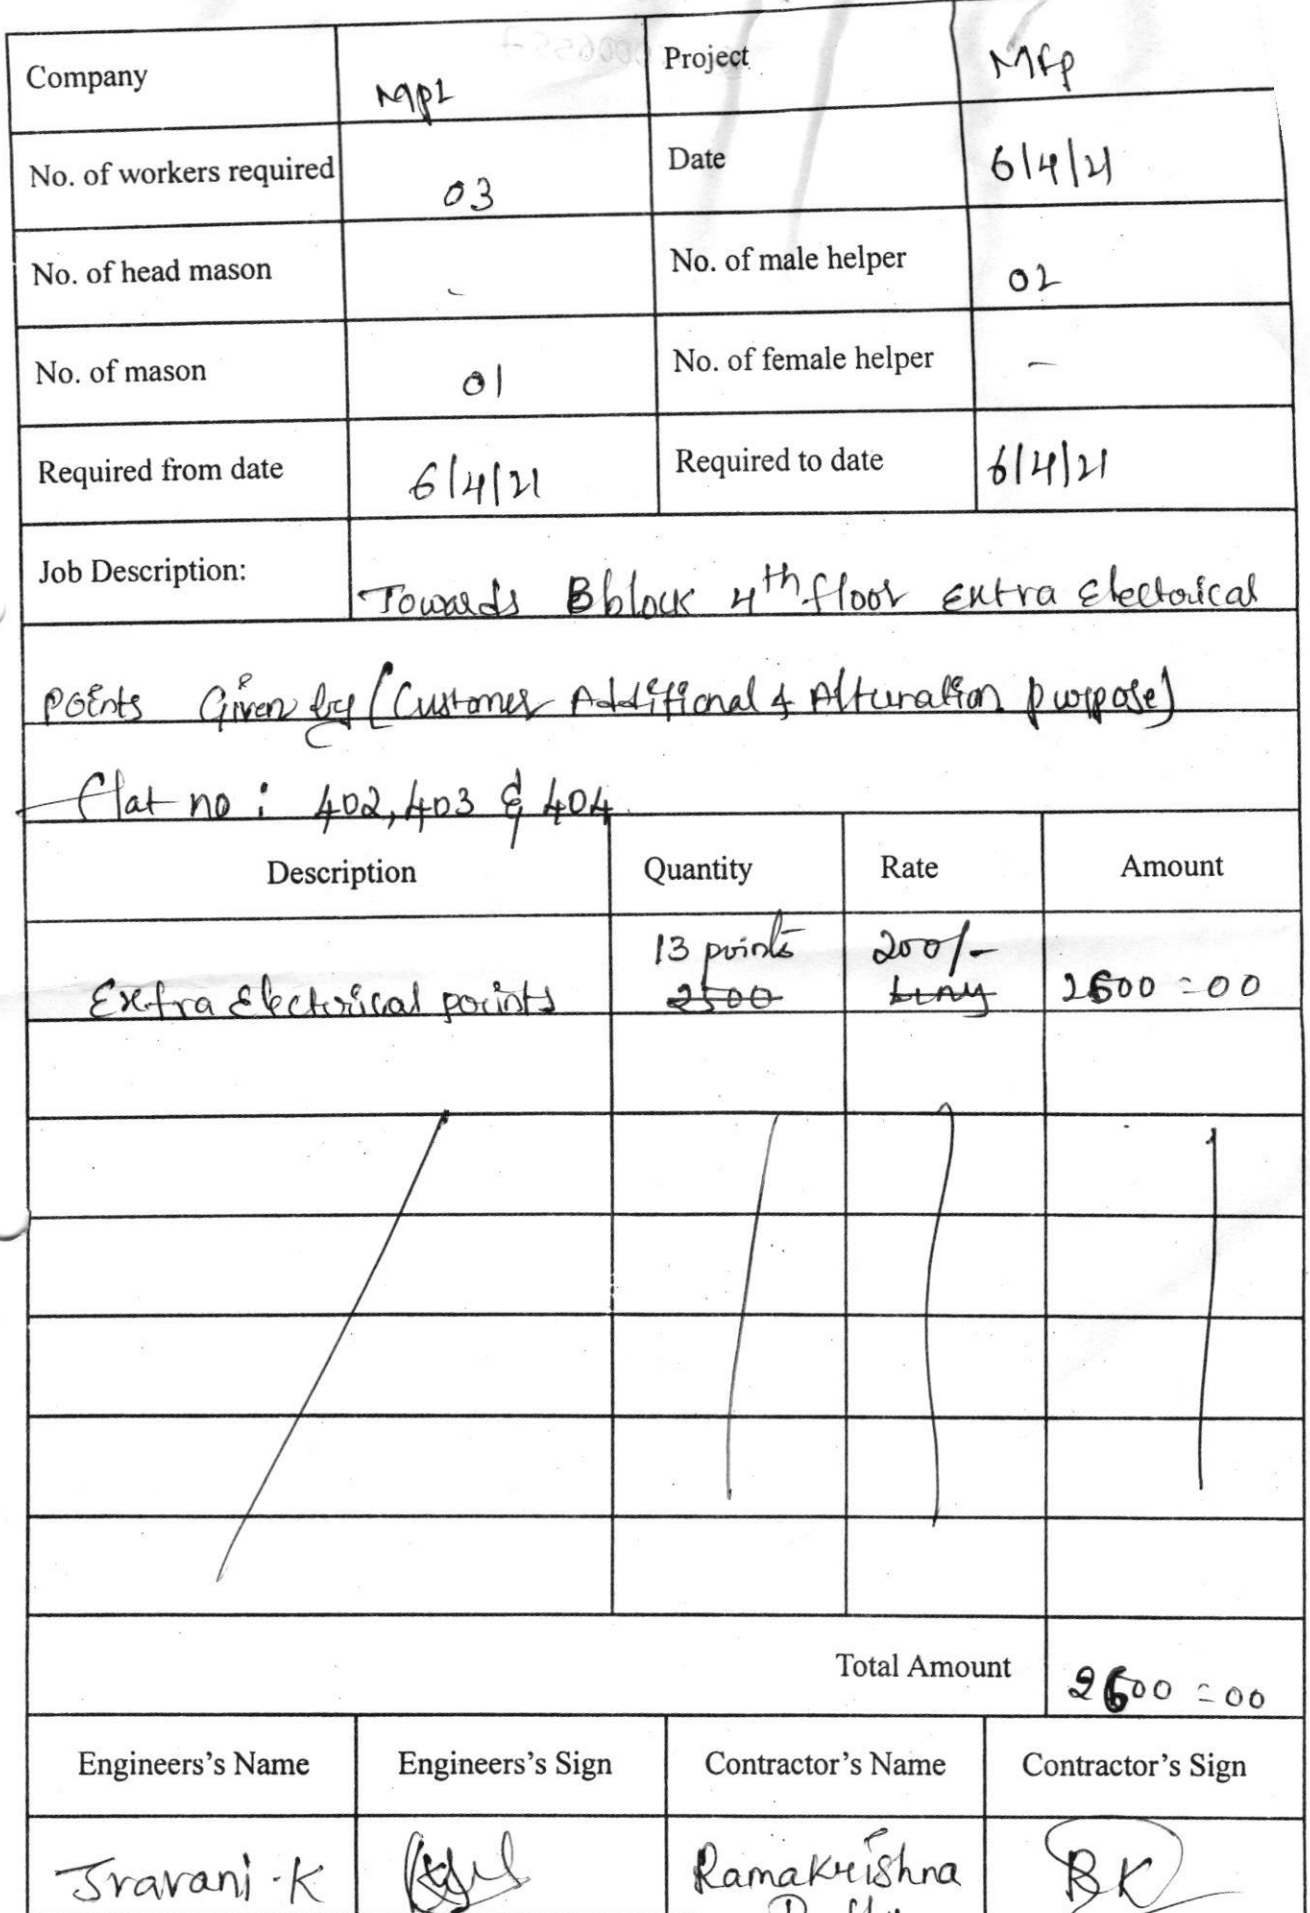 Company MPL Project MFP
No. of workers required 03 Date 6/4/21
No. of head mason - No. of male helper 02
No. of mason 01 No. of female helper -
Required from date 6/4/21 Required to date 6/4/21
Job Description: Towards B block 4th floor extra Electorical
points Given by (Customer Additional & Alturation purpose)
flat no: 402, 403 & 404
Description Quantity Rate Amount
13 points 200/-
Extra Electorical points 2500 2600=00
Total Amount 2600=00
Engineers's Name Engineers's Sign Contractor's Name Contractor's Sign
Sravani.K Ramakrishna BK